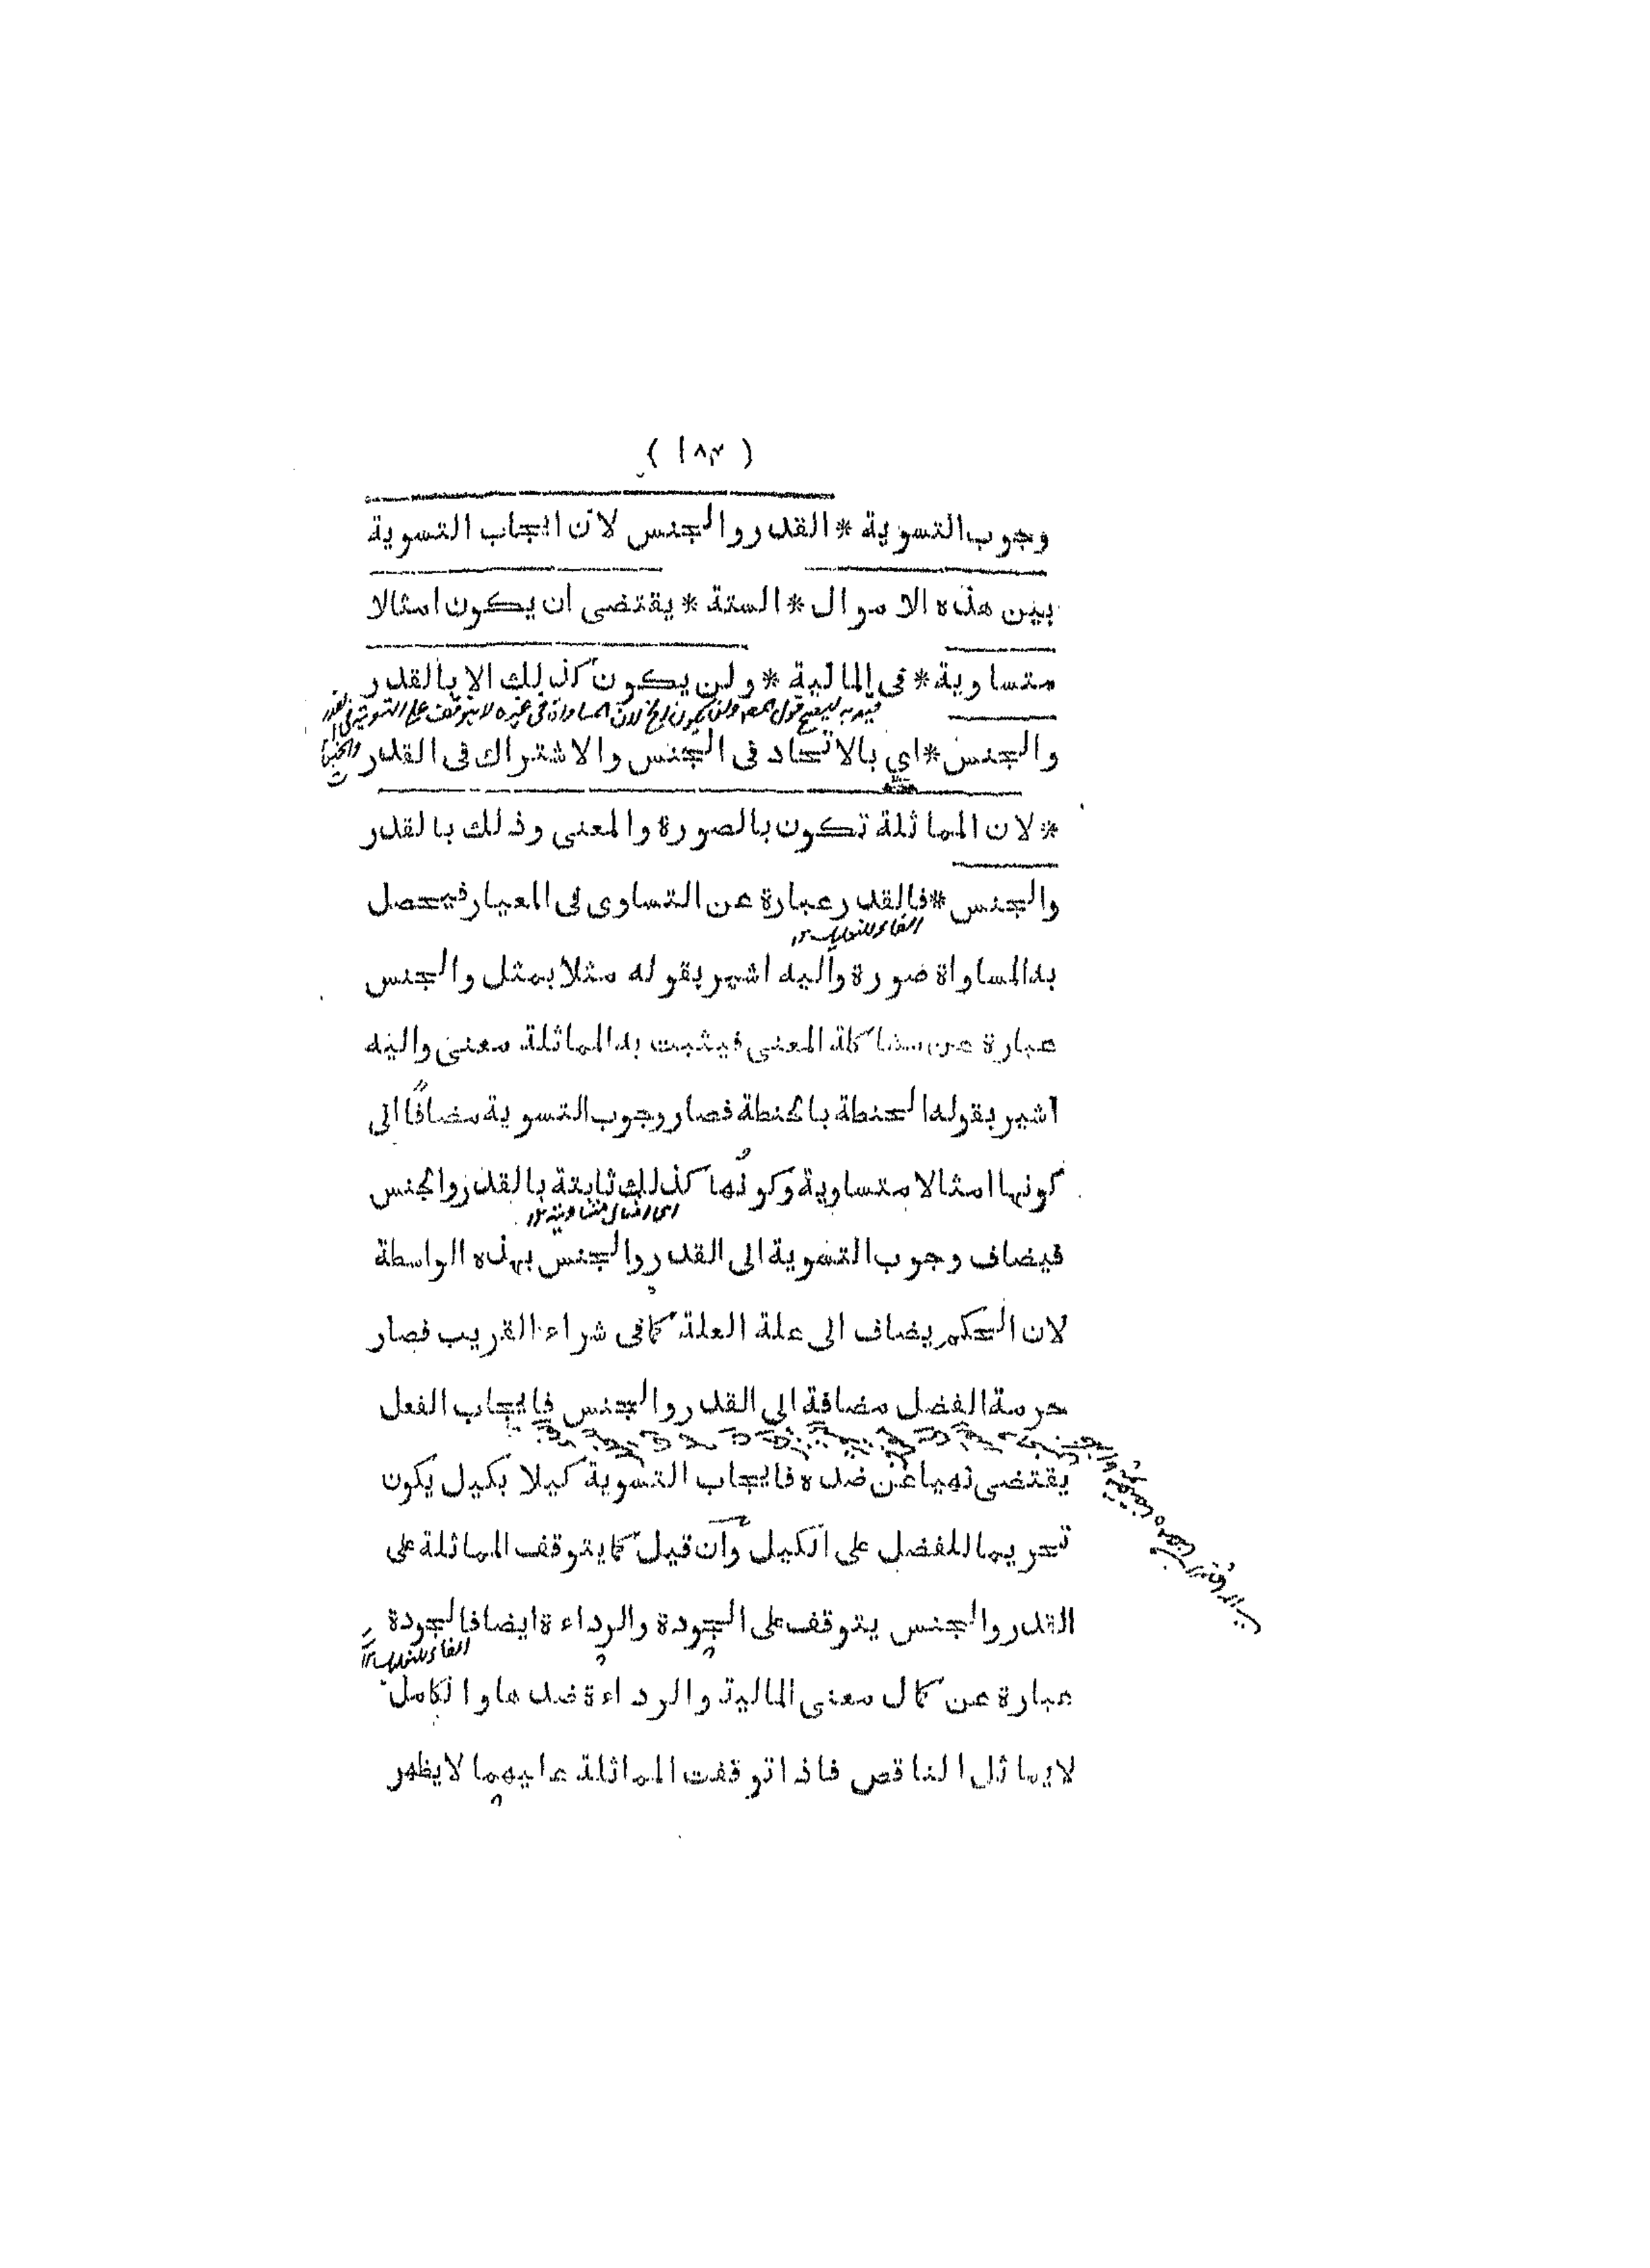 ( ١٨٣ )
وجوب التسوية * القدر والجنس لان ايجاب التسوية
بين هذه الاموال * الستة * يقتضى ان يكون امثالا
متساوية * فى المالية * ولن يكون كذلك الا بالقدر
قيد به ليصح قول المص ولن يكون الخ لان المساواة فى غيره لا يتوقف على التسوية فى القدر
والجنس
والجنس * اي بالاتحاد فى الجنس والاشتراك فى القدر
* لان المماثلة تكون بالصورة والمعنى وذلك بالقدر
والجنس * فالقدر عبارة عن التساوى فى المعيار فيحصل
الفاء للتعليل
به المساواة صورة واليه اشير بقوله مثلا بمثل والجنس
عبارة عن مشاكلة المعنى فيثبت به المماثلة معنى واليه
اشير بقوله الحنطة بالحنطة فصار وجوب التسوية مضافا الى
كونها امثالا متساوية وكونها كذلك ثابتة بالقدر والجنس
اى امثالا متساوية
فيضاف وجوب التسوية الى القدر والجنس بهذه الواسطة
لان الحكم يضاف الى علة العلة كما فى شراء القريب فصار
حرمة الفضل مضافة الى القدر والجنس فايجاب الفعل
يقتضى نهيا عن ضده فايجاب التسوية كيلا بكيل يكون
تحريما للفضل على الكيل وان قيل كما يتوقف المماثلة على
القدر والجنس يتوقف على الجودة والرداءة ايضا فالجودة
الفاء للتعليل
عبارة عن كمال معنى المالية والرداءة ضدها والكامل
لا يماثل الناقص فاذا توقفت المماثلة عليهما لا يظهر